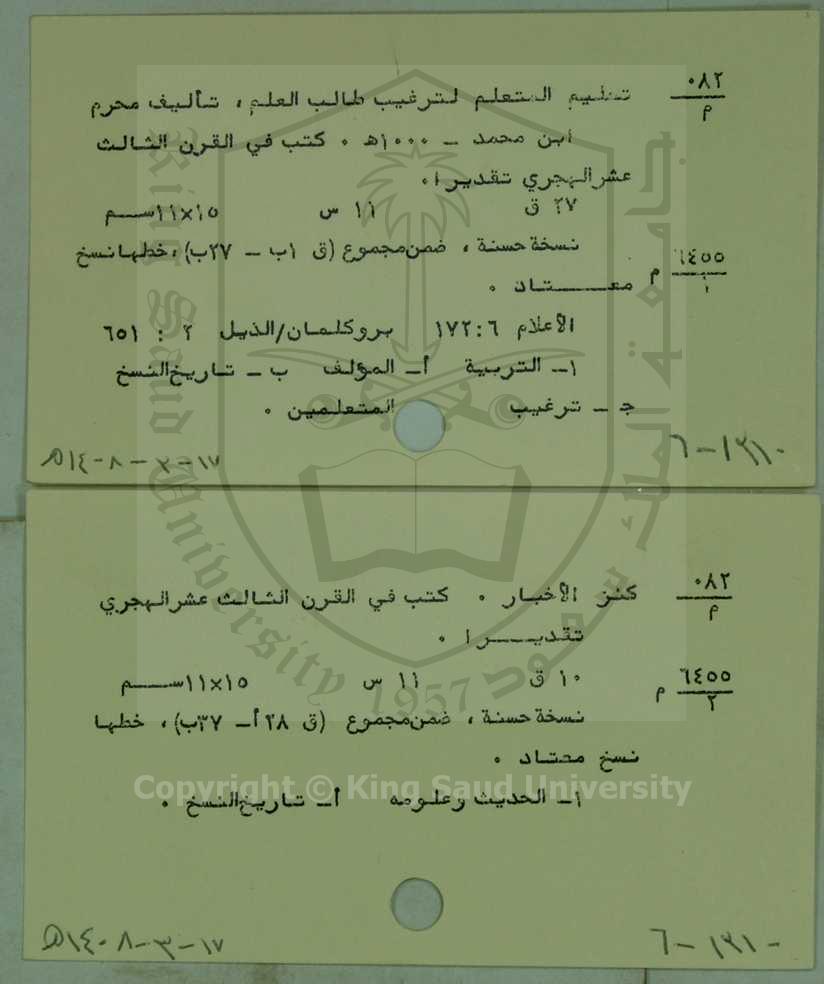 ٠٨٢
م
تعليم المتعلم لترغيب طالب العلم، تأليف محرم
ابن محمد - ١٠٠٠ه . كتب في القرن الثالث
عشر الهجري تقديرا.
٢٧ ق ١١ س ١٥×١١ســم
٦٤٥٥
١
م
نسخة حسنة، ضمن مجموع (ق ١ب - ٢٧ب)، خطها نسخ
معـــتاد .
الأعلام ٦:١٧٢ بروكلمان/الذيل ٢ : ٦٥١
١- التربية أ- المؤلف ب - تاريخ النسخ
ج - ترغيب المتعلمين .
١٧-٣-١٤٠٨ه
٠٨٢
م
كنز الأخبار . كتب في القرن الثالث عشر الهجري
تقديـــرا .
٦٤٥٥
٢
م
١٠ ق ١١ س ١٥×١١ســم
نسخة حسنة، ضمن مجموع (ق ٢٨أ- ٣٧ب)، خطها
نسخ معتاد .
١- الحديث وعلومه أ- تاريخ النسخ .
١٧-٣-١٤٠٨ه
جامعة الملك سعود
King Saud University
1957
Copyright © King Saud University